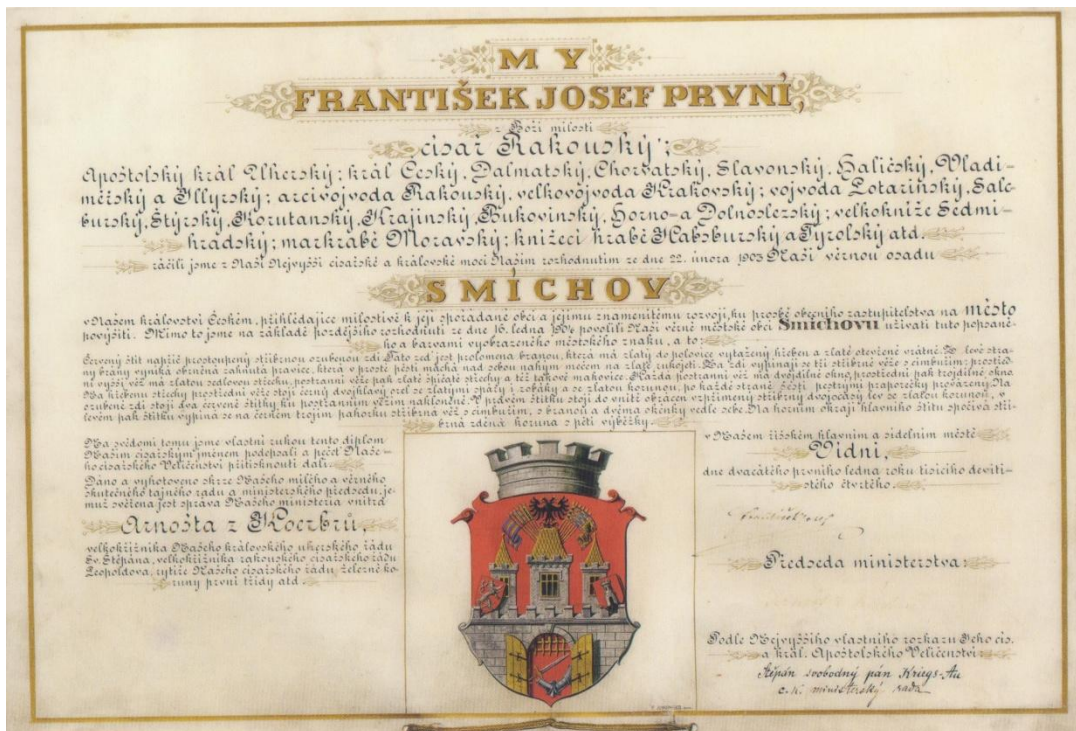 MY
FRANTIŠEK JOSEF PRVNÍ,
z Boží milosti
císař Rakouský;
Apoštolský král Uherský; král Český, Dalmatský, Chorvatský, Slavonský, Haličský, Vladi-
měřský a Illyrský; arcivojvoda Rakouský, velkovojvoda Krakovský; vojvoda Lotarinský, Salc-
burský, Štýrský, Korutanský, Krajinský, Bukovinský, Horno- a Dolnoslezský; velkokníže Sedmi-
hradský; markrabě Moravský; knížecí hrabě Habsburský a Tyrolský atd.
ráčili jsme z Naší Nejvyšší císařské a královské moci Naším rozhodnutím ze dne 22. února 1903 Naši věrnou osadu
SMÍCHOV
v Našem království Českém, přihlédajíce milostivě k její spořádané obci a jejímu znamenitému rozvoji, ku prosbě obecního zastupitelstva na město
povýšiti. Mimo to jsme na základě pozdějšího rozhodnutí ze dne 16. ledna povolili Naší věrné městské obci Smíchovu užívati tuto popsané-
ho a barvami vyobrazeného městského znaku, a to:
Červený štít napříč prostoupený stříbrnou ozubenou zdí. Tato zeď jest prolomena branou, která má zlatý do polovice vytažený hřeben a zlaté otevřené vrátně. Z levé stra-
ny brány vyniká obrněná zahnutá pravice, která v prosté pěsti máchá nad sebou nahým mečem na zlaté rukojeti. Za zdí vypínají se tři stříbrné věže s cimbuřím; prostřed-
ní vyšší věž má zlatou sedlovou střechu, postranní věže pak zlaté špičaté střechy a též takové makovice. Každá postranní věž má dvojdílné okno, prostřední pak trojdílné okno.
Na hřebenu střechy prostřední věže stojí černý dvojhlavý orel se zlatými spáry i zobáky a se zlatou korunou, po každé straně šesti pestrými praporečky provázený. Na
ozubené zdi stojí dva červené štítky ku postranním věžím nakloněné. V pravém štítku stojí do vnitř obrácen vzpřímený stříbrný dvojocasý lev se zlatou korunou, v
levém pak štítku vypíná se na černém trojím pahorku stříbrná věž s cimbuřím, s branou a dvěma okénky vedle sebe. Na horním okraji hlavního štítu spočívá stří-
brná zděná koruna s pěti výběžky.
Na svědomí tomu jsme vlastní rukou tento diplom
Naším císařským jménem podepsali a pečeť Naše-
ho císařského Veličenství přitisknouti dali.
Dáno a vyhotoveno skrze Našeho milého a věrného
skutečného tajného radu a ministerského předsedu, je-
muž svěřena jest správa Našeho ministeria vnitra
Arnošta z Koerbrů,
velkokřižníka Našeho královského uherského řádu
Sv. Štěpána, velkokřižníka rakouského císařského řádu
Leopoldova, rytíře Našeho císařského řádu železné ko-
runy první třídy atd.
v Našem říšském hlavním a sídelním městě
Vídni,
dne dvacátého prvního ledna roku tisícího devíti-
stého čtvrtého.
František Josef
Předseda ministerstva:
Podle Nejvyššího vlastního rozkazu Jeho cís.
a král. Apoštolského Veličenství:
Štěpán svobodný pán Kriegs-Au
c.k. ministerský rada